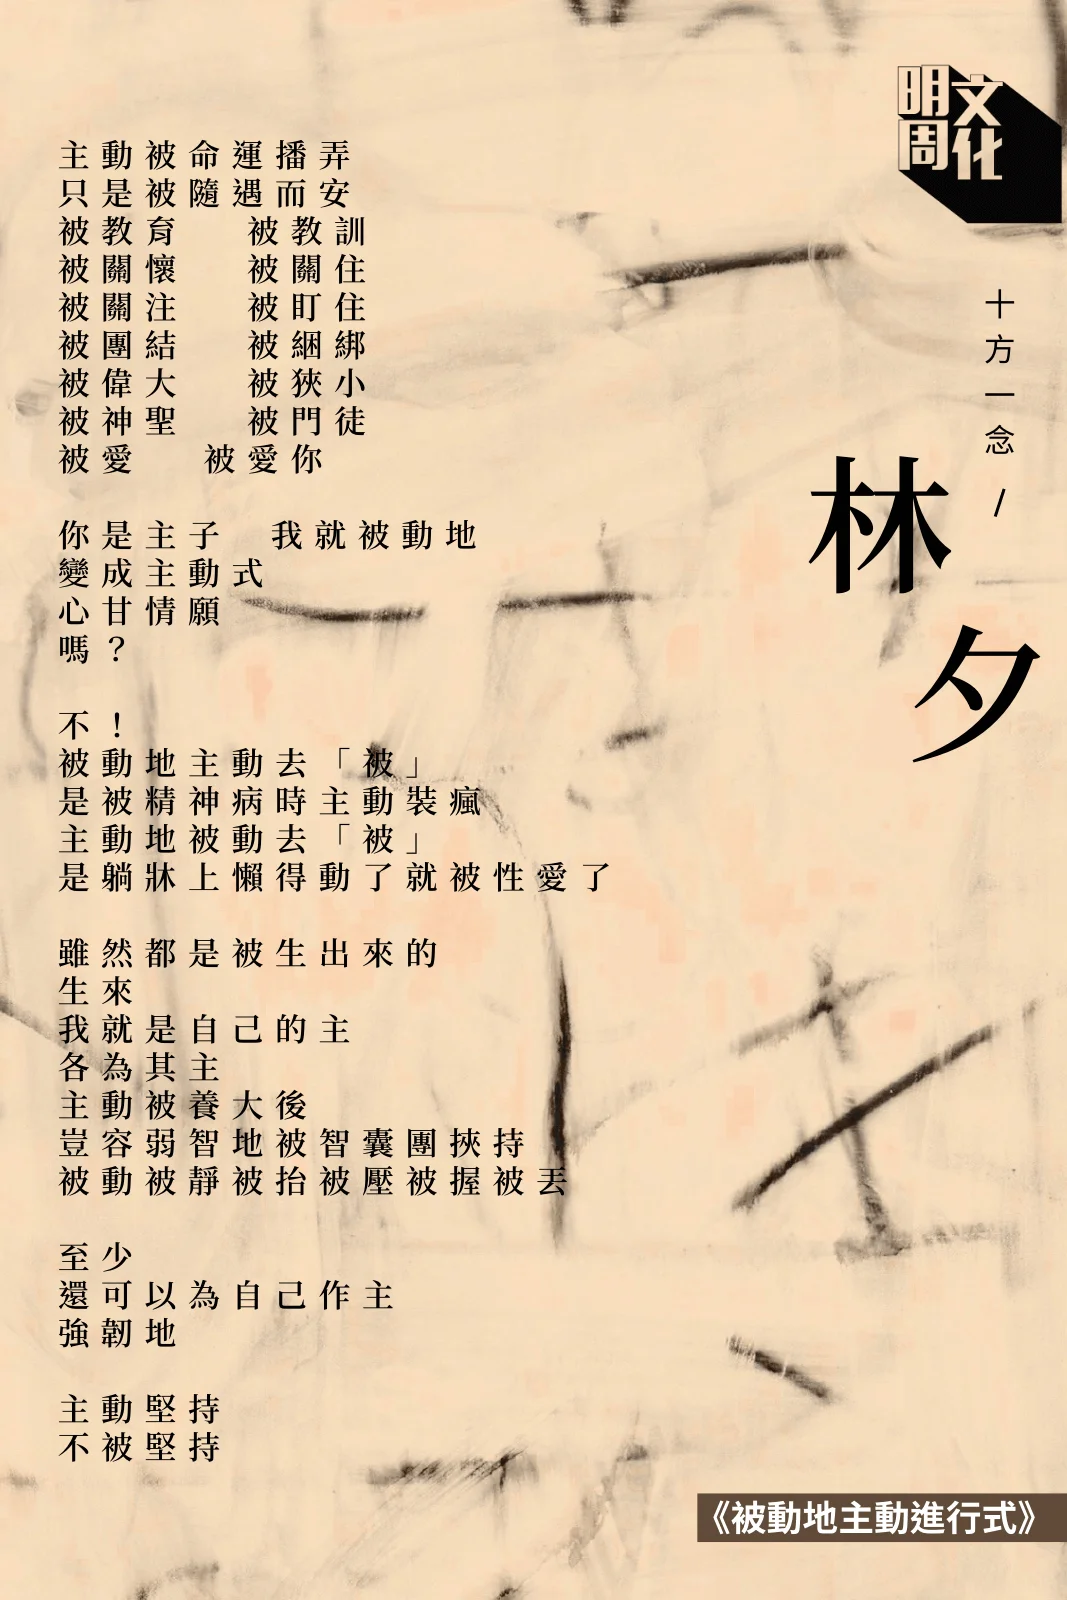 明周文化
十方一念 /
林夕
主動被命運播弄
只是被隨遇而安
被教育　被教訓
被關懷　被關住
被關注　被盯住
被團結　被綑綁
被偉大　被狹小
被神聖　被門徒
被愛　被愛你
你是主子　我就被動地
變成主動式
心甘情願
嗎？
不！
被動地主動去「被」
是被精神病時主動裝瘋
主動地被動去「被」
是躺牀上懶得動了就被性愛了
雖然都是被生出來的
生來
我就是自己的主
各為其主
主動被養大後
豈容弱智地被智囊團挾持
被動被靜被抬被壓被握被丟
至少
還可以為自己作主
強韌地
主動堅持
不被堅持
《被動地主動進行式》